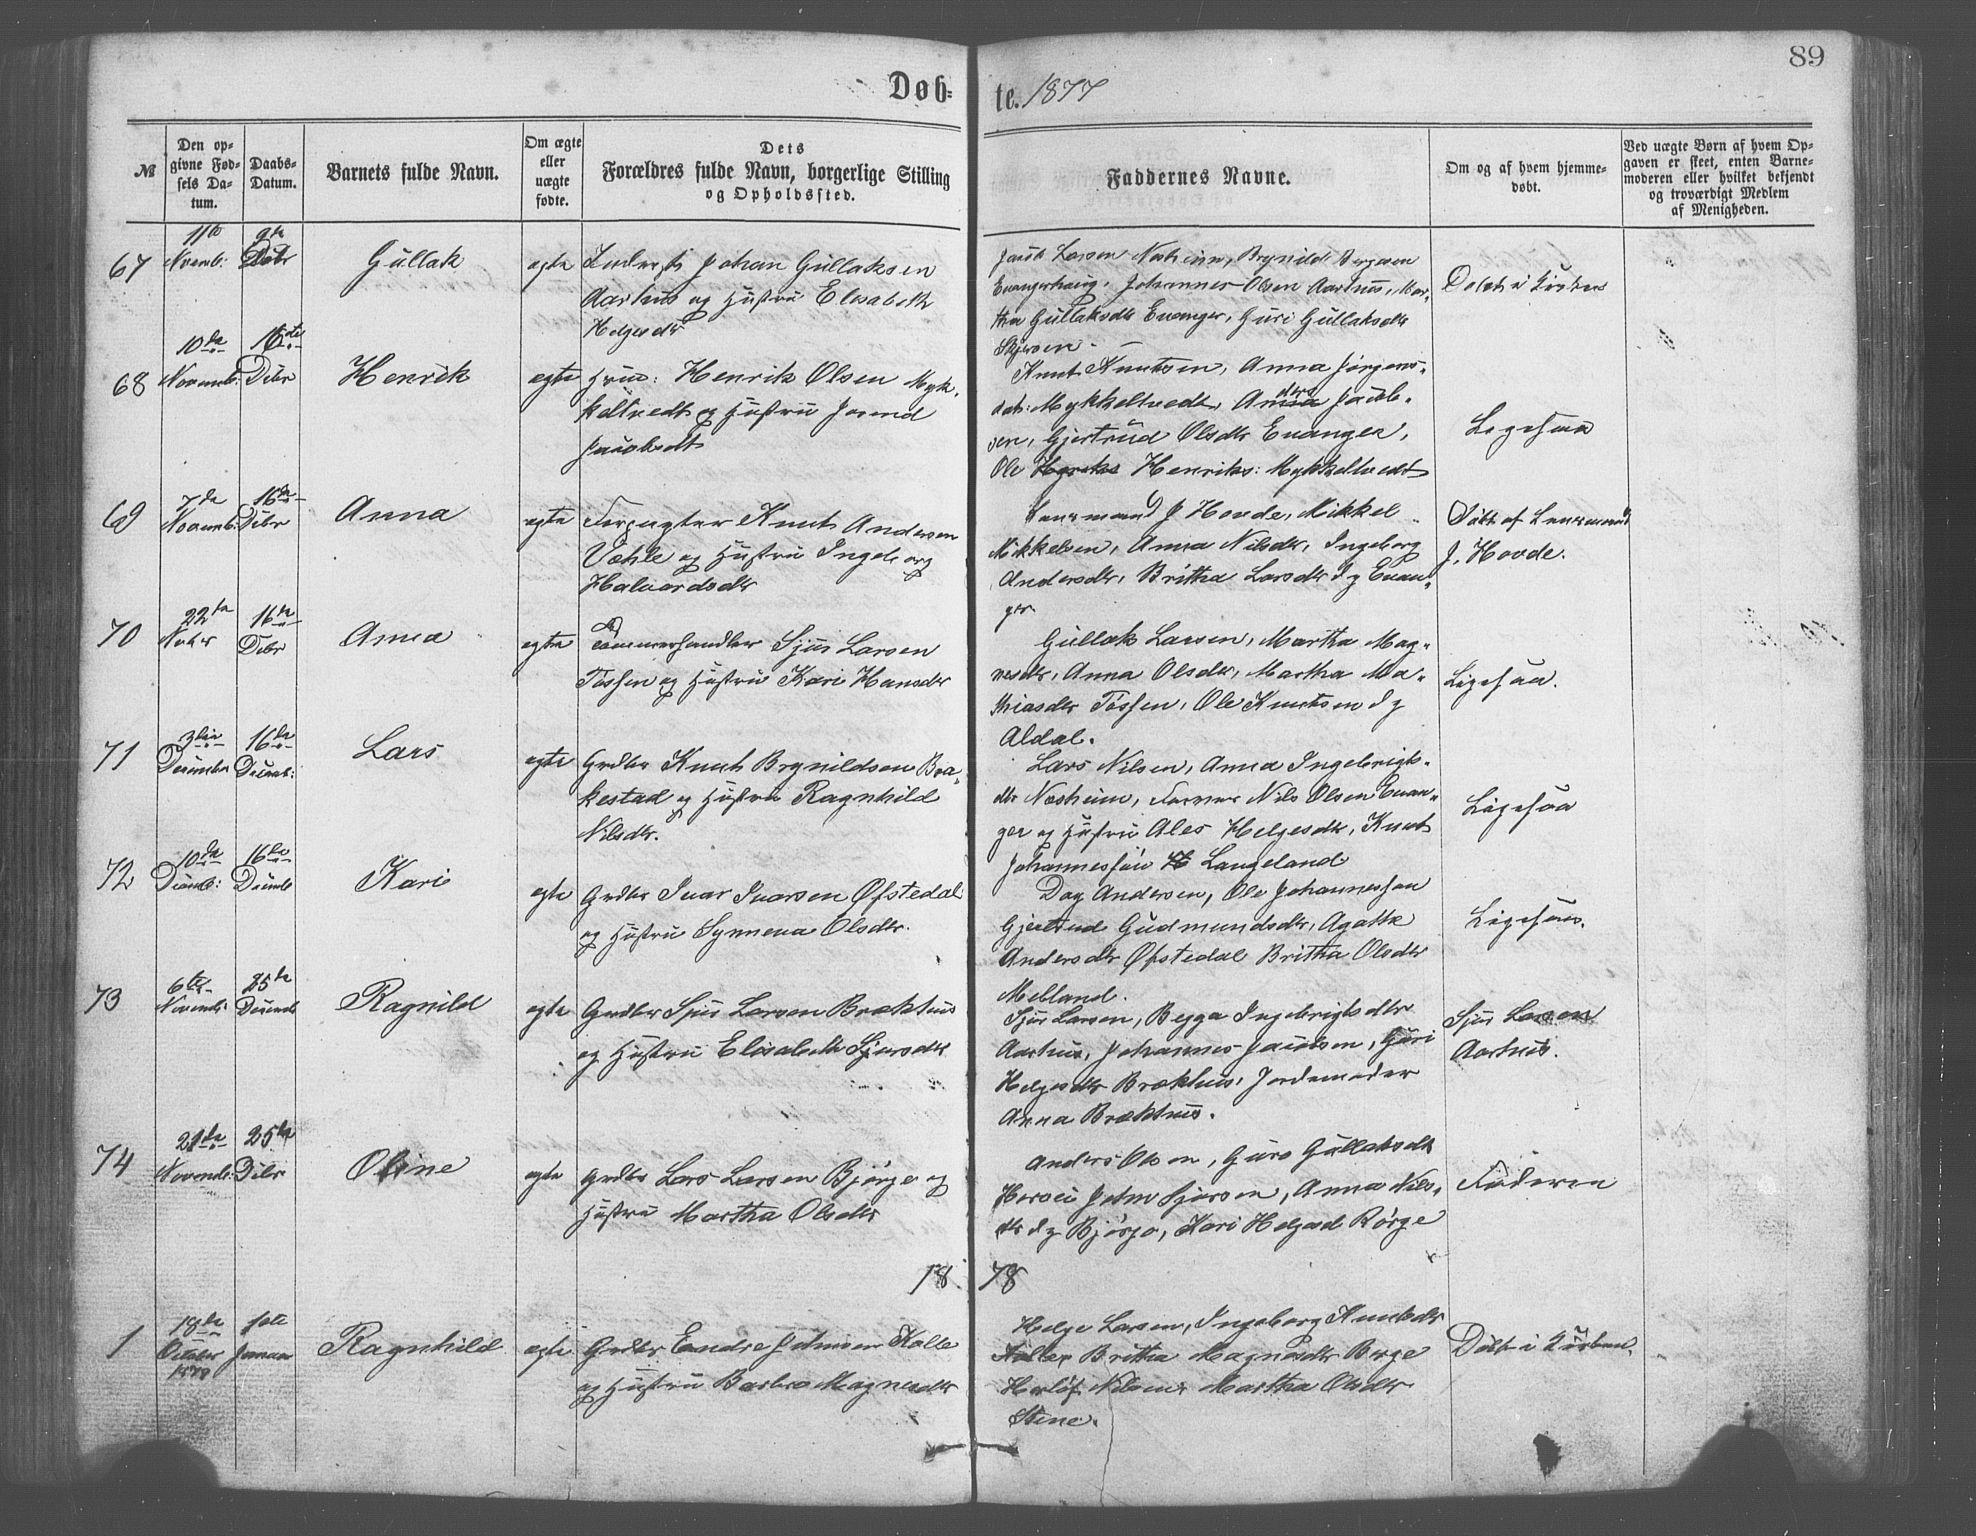 89
Døb- te. 1877
№
Den op-
givne Fød-
sels Da-
tum.
Daabs-
Datum.
Barnets fulde Navn.
Om ægte
eller
uægte
fødte.
Dets
Forældres fulde Navn, borgerlige Stilling
og Opholdssted.
Faddernes Navne.
Om og af hvem hjemme-
døbt.
Ved uægte Børn af hvem Op-
gaven er skeet, enten Barne-
moderen eller hvilket bekjendt
og troværdigt Medlem
af Menigheden.
67
11te
Novemb:
9de
Debr
Gullak
ægte
Johan Gullaksen
Aarhus og Hustru Elisabeth
Helgesdtr
Larsen Nesheim, Brynild
Johannes Olsen Aarhus, Mar-
tha Gullaksdtr Evanger, Guri Gullaksdtr
Døbt i Kirken
68
10de
Novemb:
16de
Debr
Henrik
ægte
Henrik Olsen Myk-
keltvedt og Hustru
Jacobsdt
Knut Knutsen, Anna Jørgens-
datr Mykkeltvedt, Jacob-
sen, Gjertrud Olsdtr Evanger,
Ole Henriks: Mykkeltvedt
Ligesaa
69
7de
Novemb:
16de
Debr
Anna
ægte
Forpagter Knut Andersen
Væhle og Hustru Ingeborg
Halvardsdtr
Lensmand J Hovde, Mikkel
Mikkelsen, Anna Nilsdtr, Ingeborg
Andersdtr, Britha Larsdtr Evan-
ger
Døbt af Lensmand
J. Hovde.
70
22de
Nobr
16de
Debr
Anna
ægte
Tømmerhandler Sjur Larsen
Tøssen og Hustru Kari Hansdtr
Gullak Larsen, Martha Mag-
nesdtr, Anna Olsdtr, Martha Ma-
thiasdtr Tøssen, Ole Knutsen
Aldal.
Ligesaa.
71
3die
December
16de
Decemb:
Lars
ægte
Grdbr Knut Brynildsen Bra-
kestad og Hustru Ragnhild
Nilsdtr.
Lars Nilsen, Anna Ingebrigts-
dtr Nesheim, Nils Olsen Evan-
ger og Hustru Ales Helgesdtr, Knut
Johannessøn Langeland
Ligesaa
72
10de
Decemb:
16de
Decemb
Kari
ægte
Grdbr Ivar Ivarsen Øfstedal
og Hustru Synneva Olsdtr.
Dag Andersen, Ole Johannessøn
Gjertrud Gudmundsdtr, Agatha
Andersdtr Øfstedal Britha Olsdtr
Melland.
Ligesaa.
73
6te
Novemb:
25de
Decemb
Ragnild
ægte
Grdbr Sjur Larsen Brækhus
og Hustru Elisabeth Sjursdtr
Sjur Larsen, Begga Ingebrigtsdtr
Aarhus, Johannes Jacobsen, Guri
Helgesdtr Brækhus, Jordemoder
Anna Brækhus.
Sjur Larsen
Aarhus.
74
21de
Novemb:
25de
Debr
Oline
ægte
Grdbr Lars Larsen Bjørge og
Hustru Martha Olsdtr
Anders Olsen, Guro Gullaksdt
John Sjursen, Anna Nils-
dtr Bjørge, Kari Helgesd Rørge
Faderen
18 78
1
18de
October
1ste
Januar
Ragnhild
ægte
Grdbr Endre Johnsen Kolle
og Hustru Barbro Magnesdtr
Helge Larsen, Ingeborg Knutsdtr
Britha Magnesdtr Berge
Herlof Nilsen, Martha Olsdtr
Stene.
Døbt i Kirken.